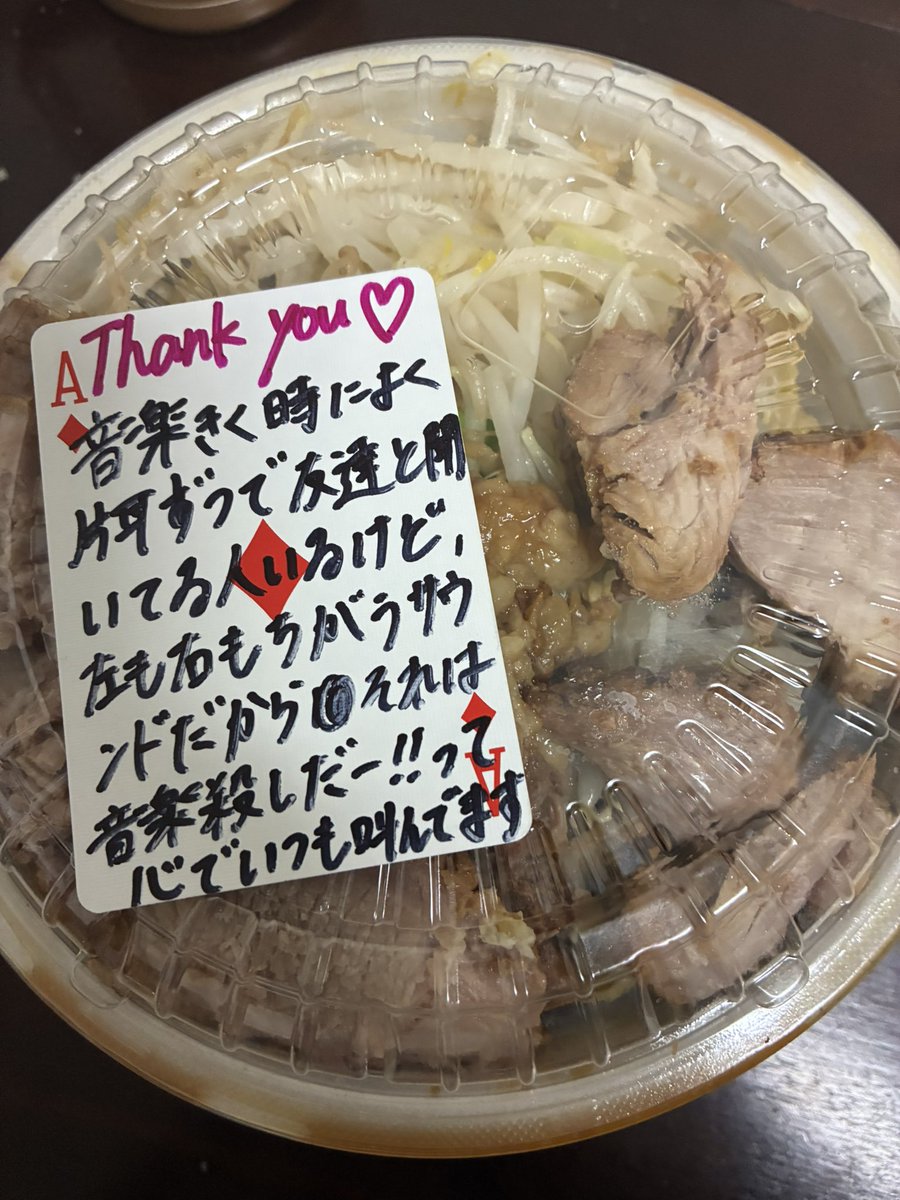 Thank you♡
A
音楽きく時によく
片耳ずつで友達と聞
いてる人いるけど,
左も右もちがうサウ
ンドだからそれは
音楽殺しだー!!って
心でいつも叫んでます
A